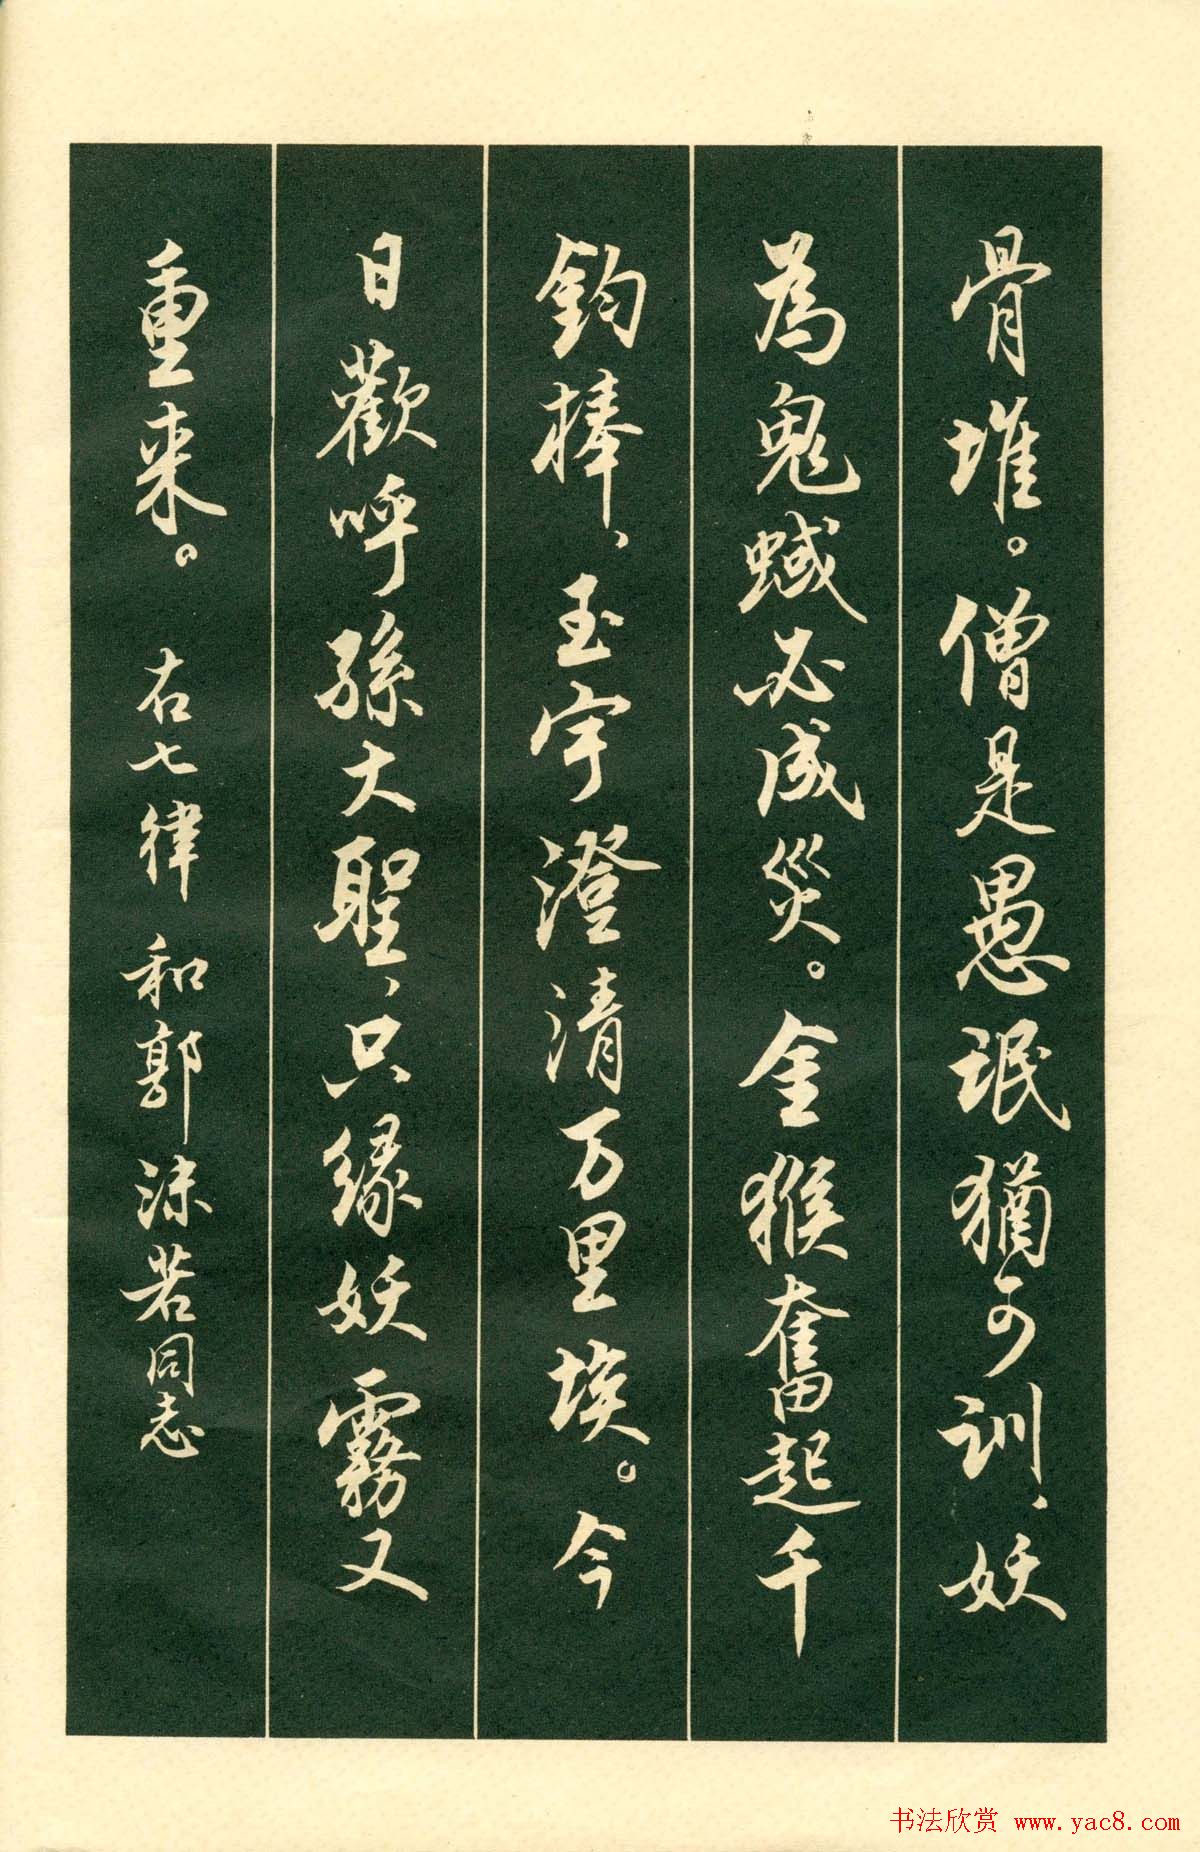 骨堆。僧是愚氓猶可训、妖
為鬼蜮必成災。金猴奮起千
鈞棒、玉宇澄清万里埃。今
日歡呼孫大聖、只緣妖霧又
重来。 右七律 和郭沫若同志
书法欣赏 www.yac8.com